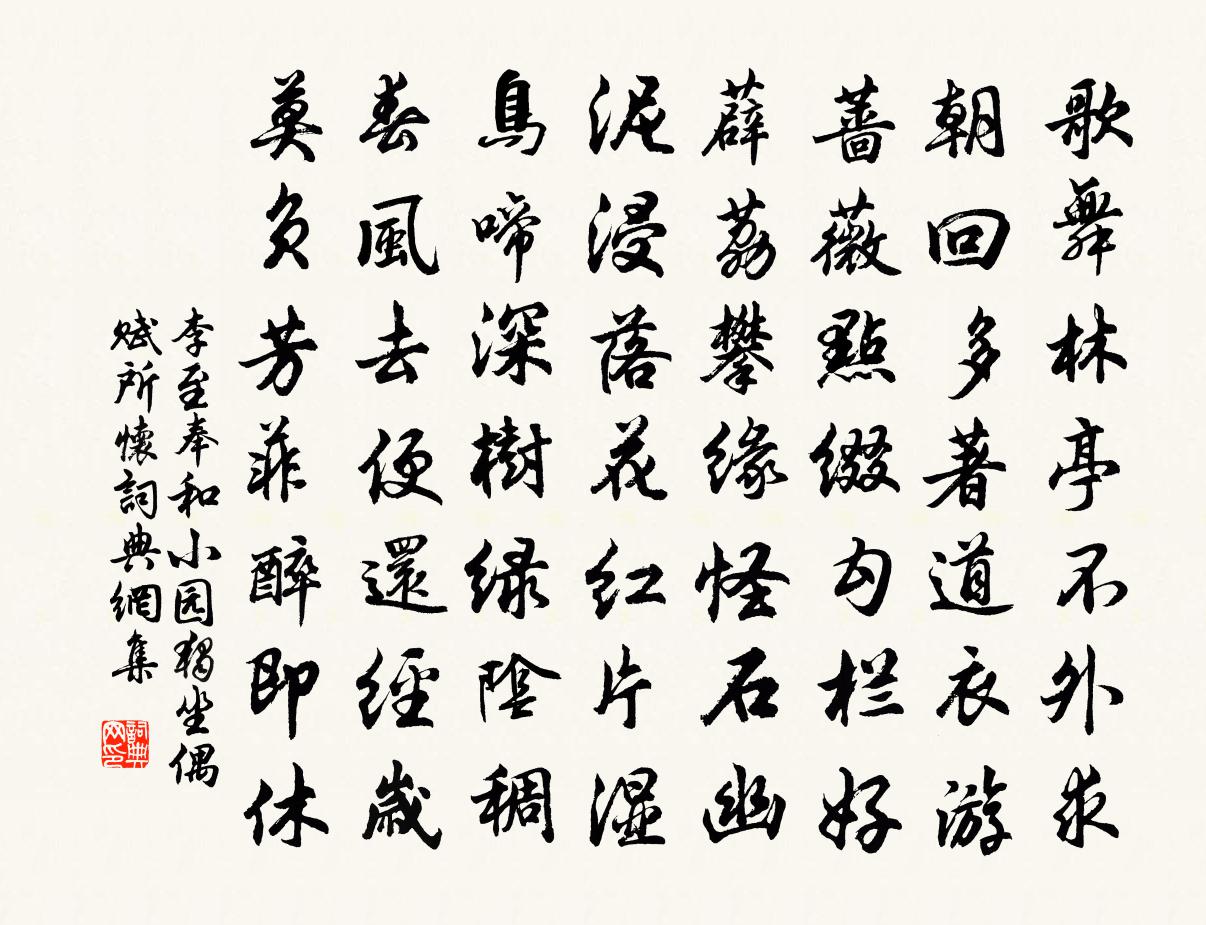 歌舞林亭不外求
朝回多著道衣游
蔷薇點缀勾栏好
薜荔攀缘怪石幽
泥浸落花红片湿
鳥啼深樹绿陰稠
春風去便還經歲
莫负芳菲醉即休
李至奉和小园独坐偶
赋所懷詞典網集
詞典网印